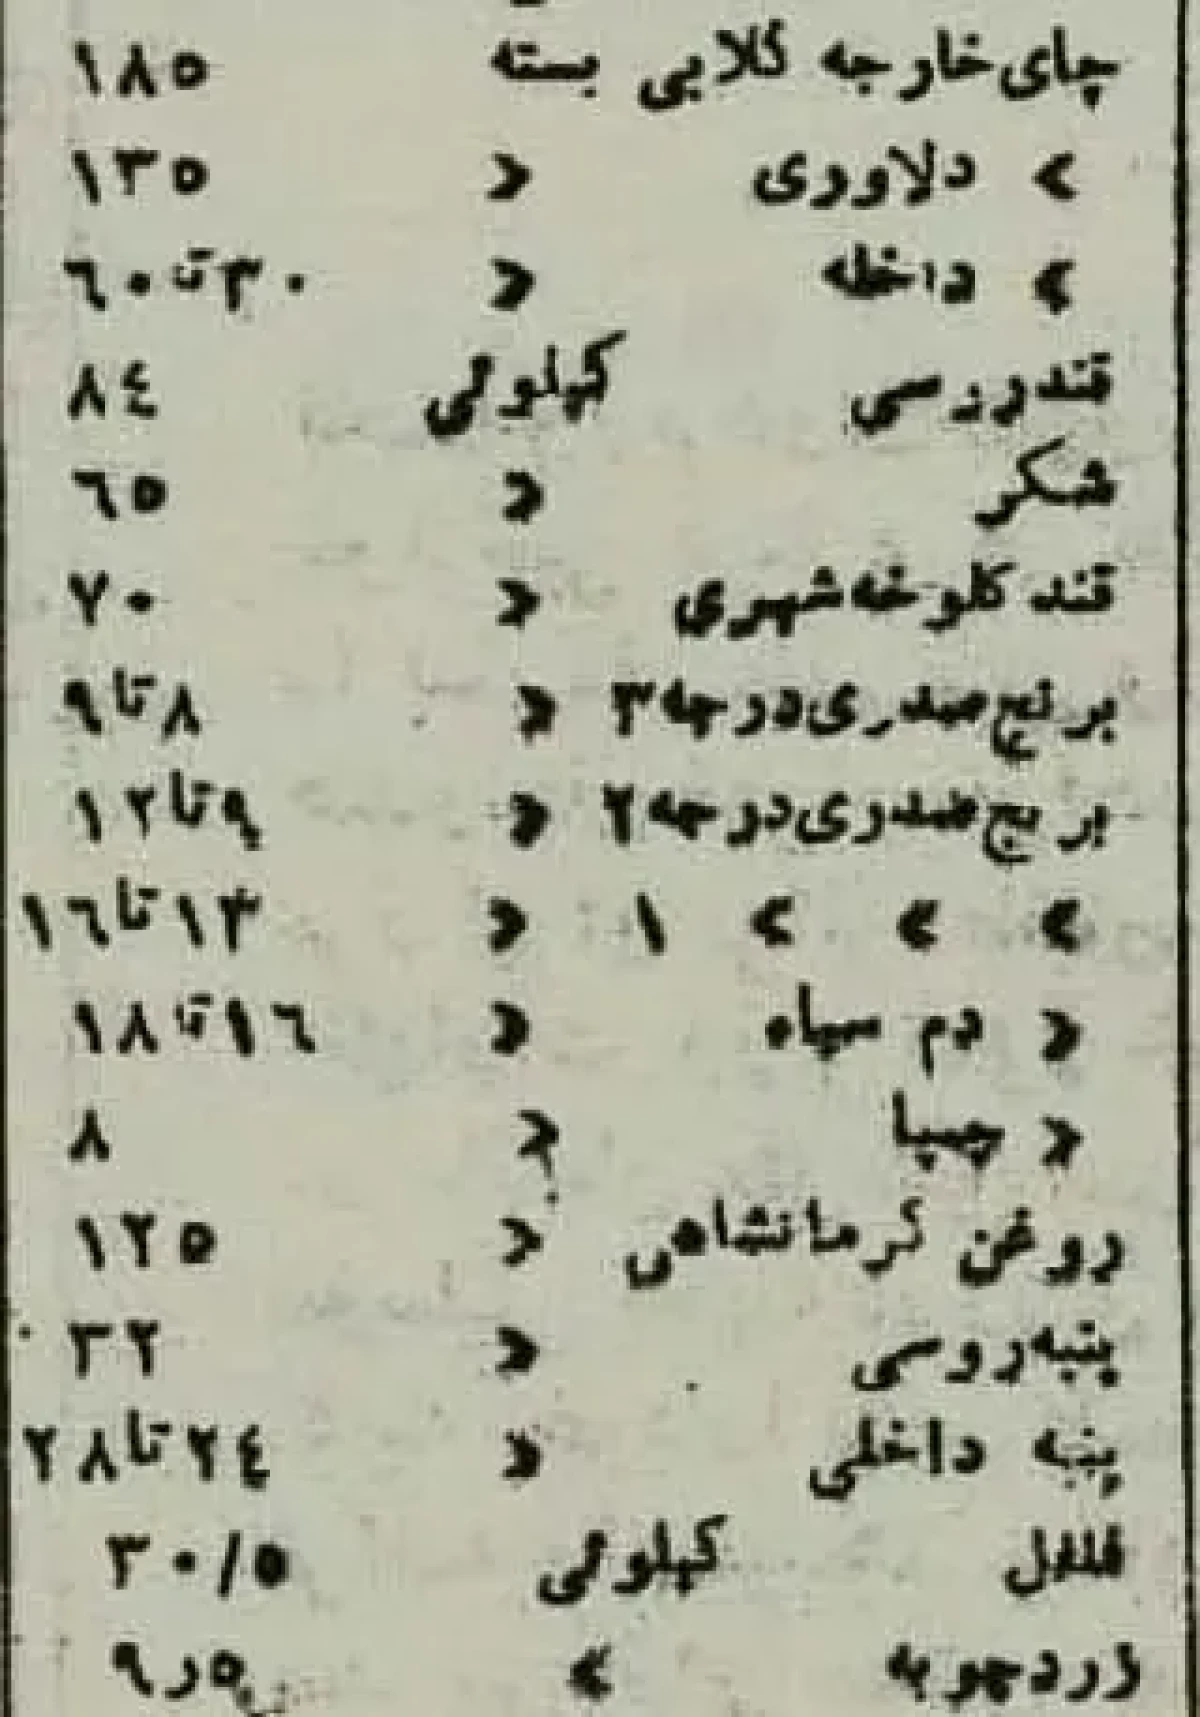 چای خارجه گلابی بسته ۱۸۵
« دلاوری » ۱۳۵
« داخله » ۳۰ تا ۶۰
قند روسی کیلوئی ۸۴
شکر » ۶۵
قند کلوخه شهری » ۷۰
برنج صدری درجه ۳ » ۸ تا ۹
برنج صدری درجه ۲ » ۹ تا ۱۲
« « « ۱ » ۱۳ تا ۱۶
» دم سیاه » ۱۶ تا ۱۸
» چمپا » ۸
روغن کرمانشاهی » ۱۲۵
پنبه روسی » ۳۲
پنبه داخلی » ۲۴ تا ۲۸
فلفل کیلوئی ۳۰/۵
زردچوبه « ۹ر۵